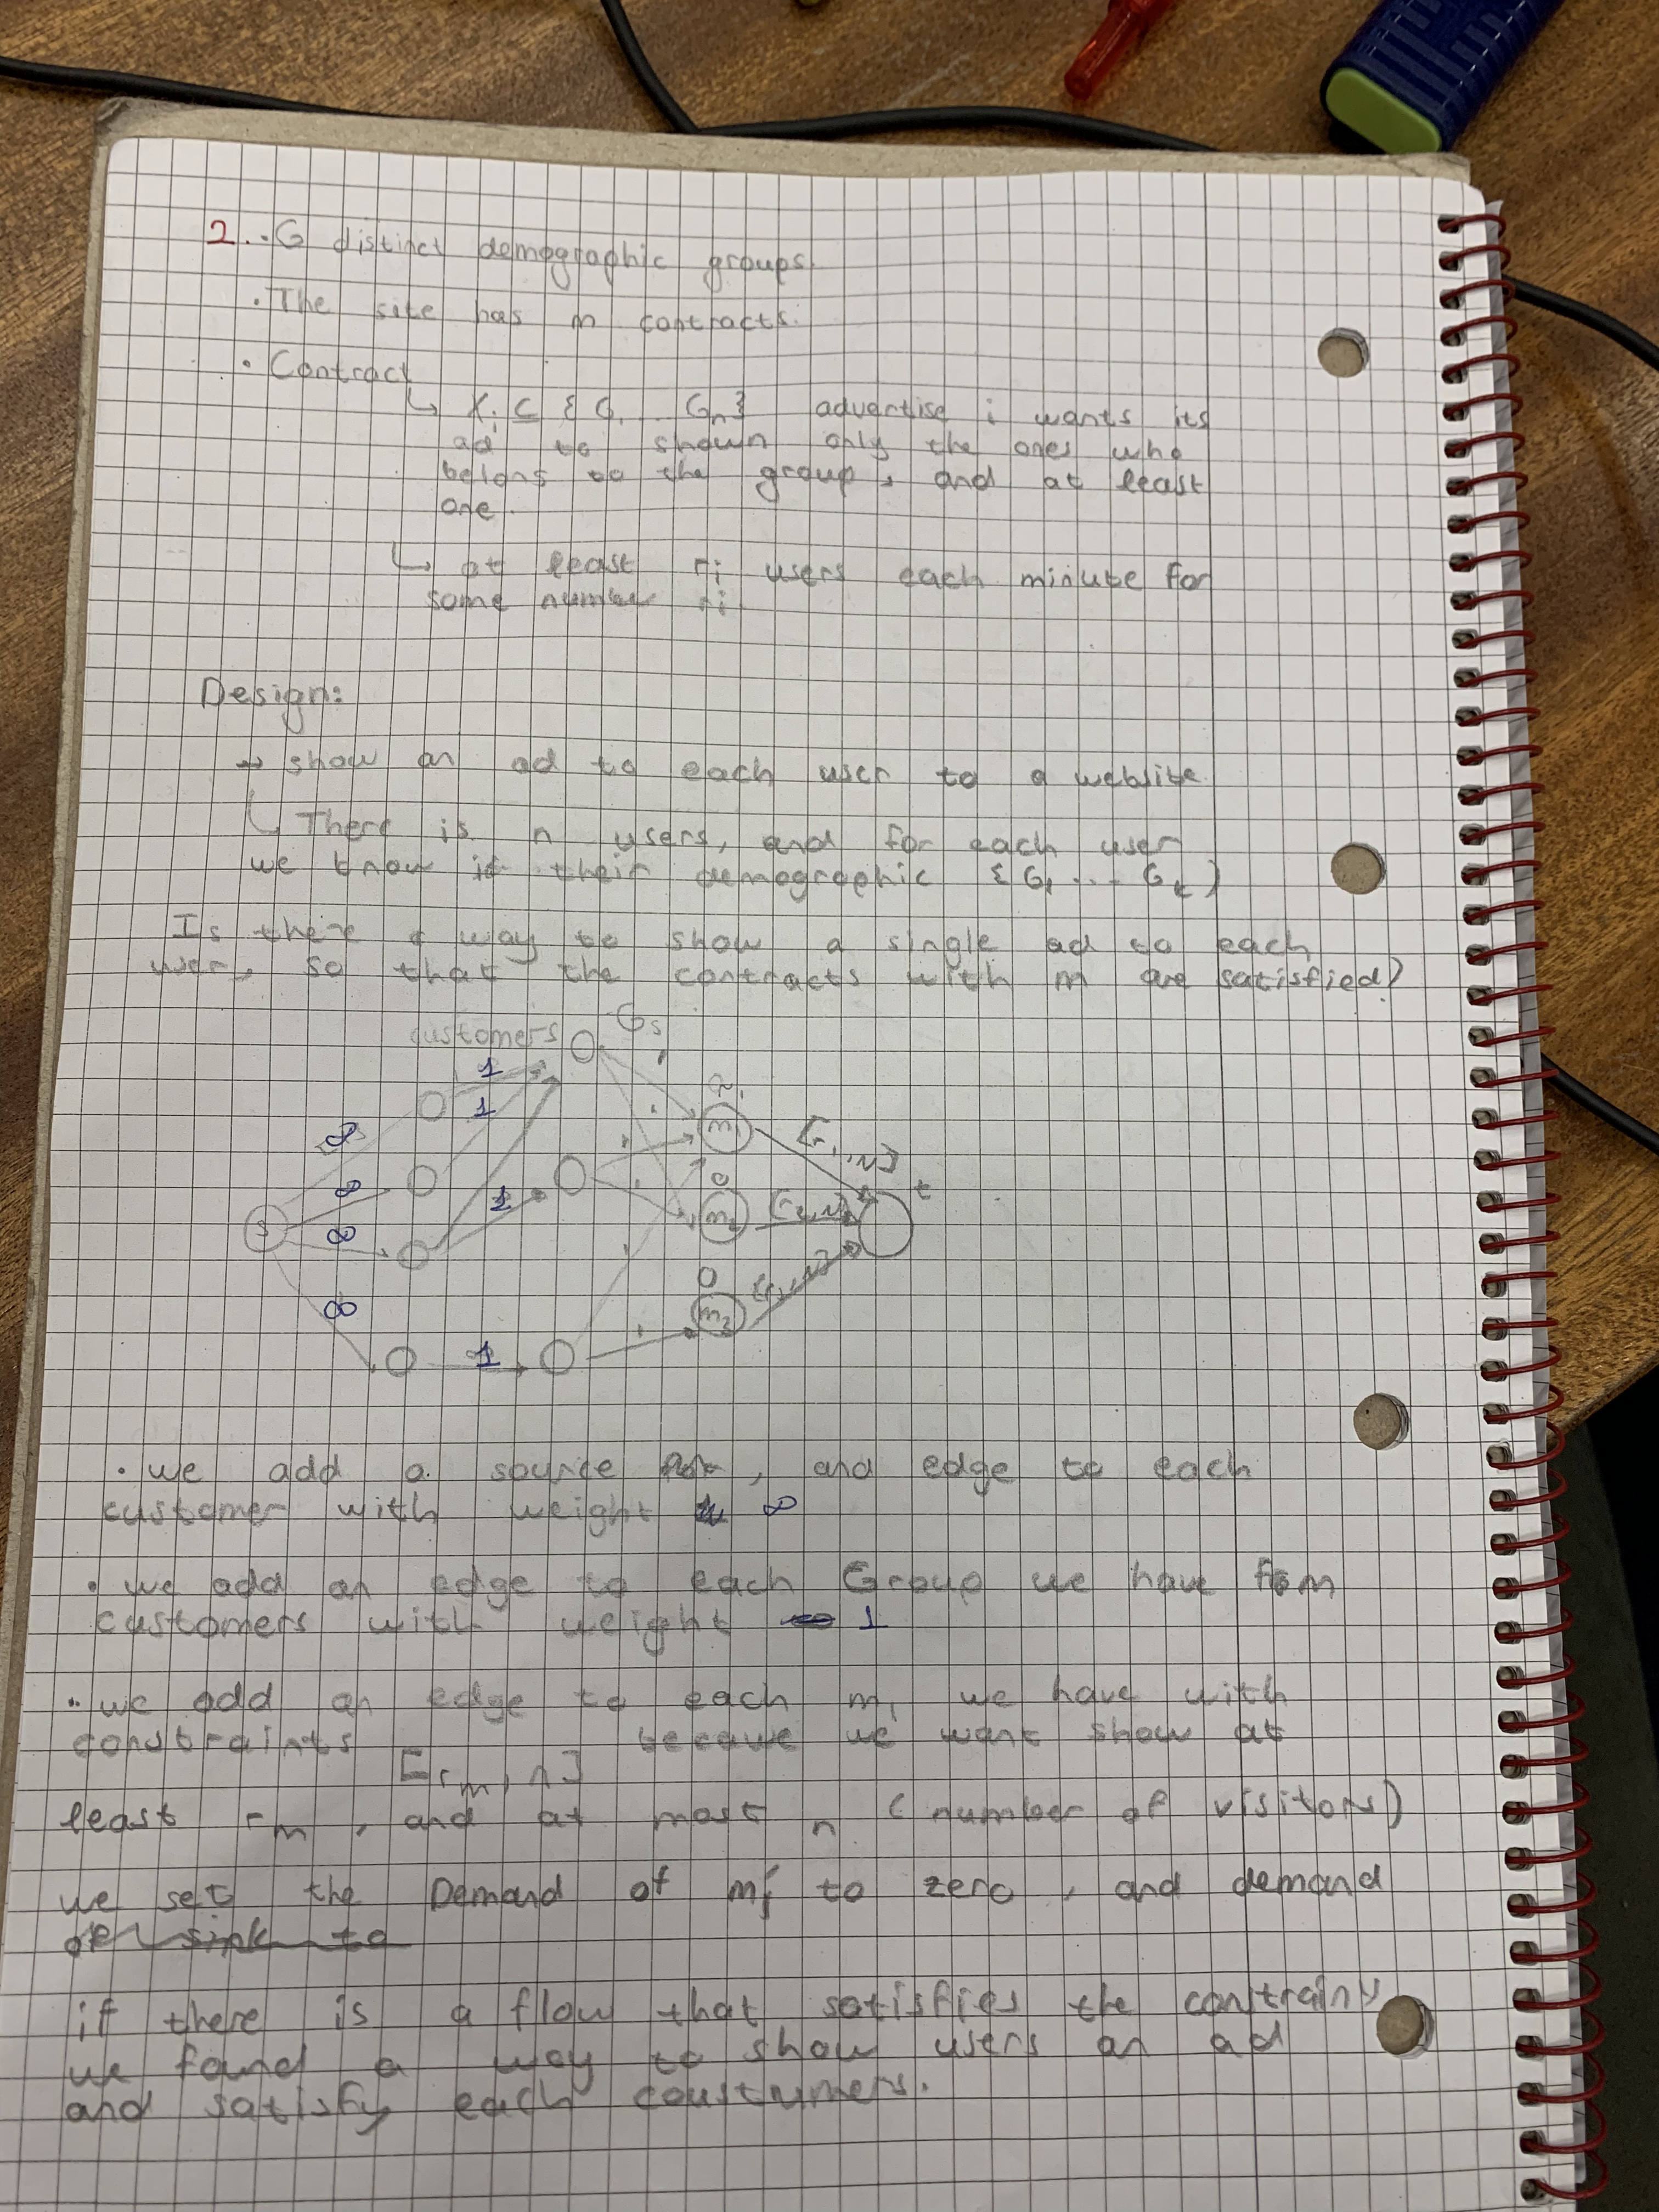 2. . G distinct demographic groups.
. The site has m contracts.
. Contract
↳ Xi ⊆ { G1 ... Gn } advertise i wants its
ad to shown only the ones who
belons to the group, and at least
one.
↳ at least ri users each minute for
some number ri
Design:
→ show an ad to each user to a website.
There is n users, and for each user
we know if their demographic {G1 ... Gk}
Is there a way to show a single ad to each
user, so that the contracts with m are satisfied?
customers Gs
1
1
∞
m1 [r1, N]
∞
1
0
t
s
∞
m2 [r2, N]
0
∞
m3
1
. we add a source , and edge to each
customer with weight ∞
. we add an edge to each Group we have from
customers with weight 1
.. we add an edge to each mi we have with
constraints because we want show at
[rm, n]
least rm , and at most n ( number of visitors)
we set the Demand of mi to zero , and demand
of sink to
if there is a flow that satisfies the constrainy
we found a way to show users an ad
and satisfy each coustumers.